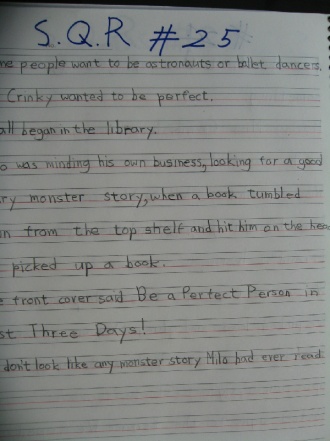 S.Q.R #25
me people want to be astronauts or ballet dancers.
Crinky wanted to be perfect.
all began in the library.
o was minding his own business, looking for a good
ry monster story, when a book tumbled
n from the top shelf and hit him on the head
picked up a book.
e front cover said Be a Perfect Person in
st Three Days!
don't look like any monster story Milo had ever read